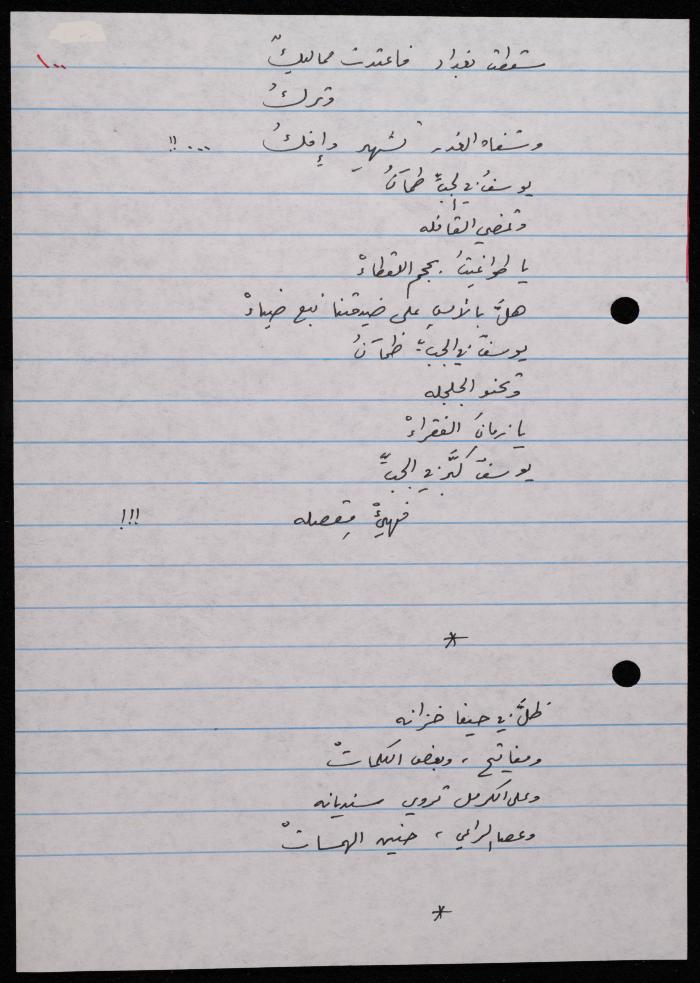 ١٠٠
سقطت بغداد فاعتدت مماليكٌ
وتركُ
وشفاه الغدر تشهيرٍ وإفكُ ...!!
يوسفُ في الجبِّ ظمآنُ
وتمضي القافله
يا طواغيتُ بحجم اللقطاءْ
هلَّ بالأمسِ على ضيقنا نبع ضياءْ
يوسفُ في الجبِّ ظمآنُ
وتحنو الجلجله
يا زمانَ الفقراءْ
يوسفُ كبَّر في الجبِّ
فهيئْ مِقصله !!!
*
ظلَّ في حيفا خزانه
ومفاتيح ، وبعض الكلماتْ
وعلى الكرمل تروي سنديانه
وعصا الراعي ، حنين الهمساتْ
*